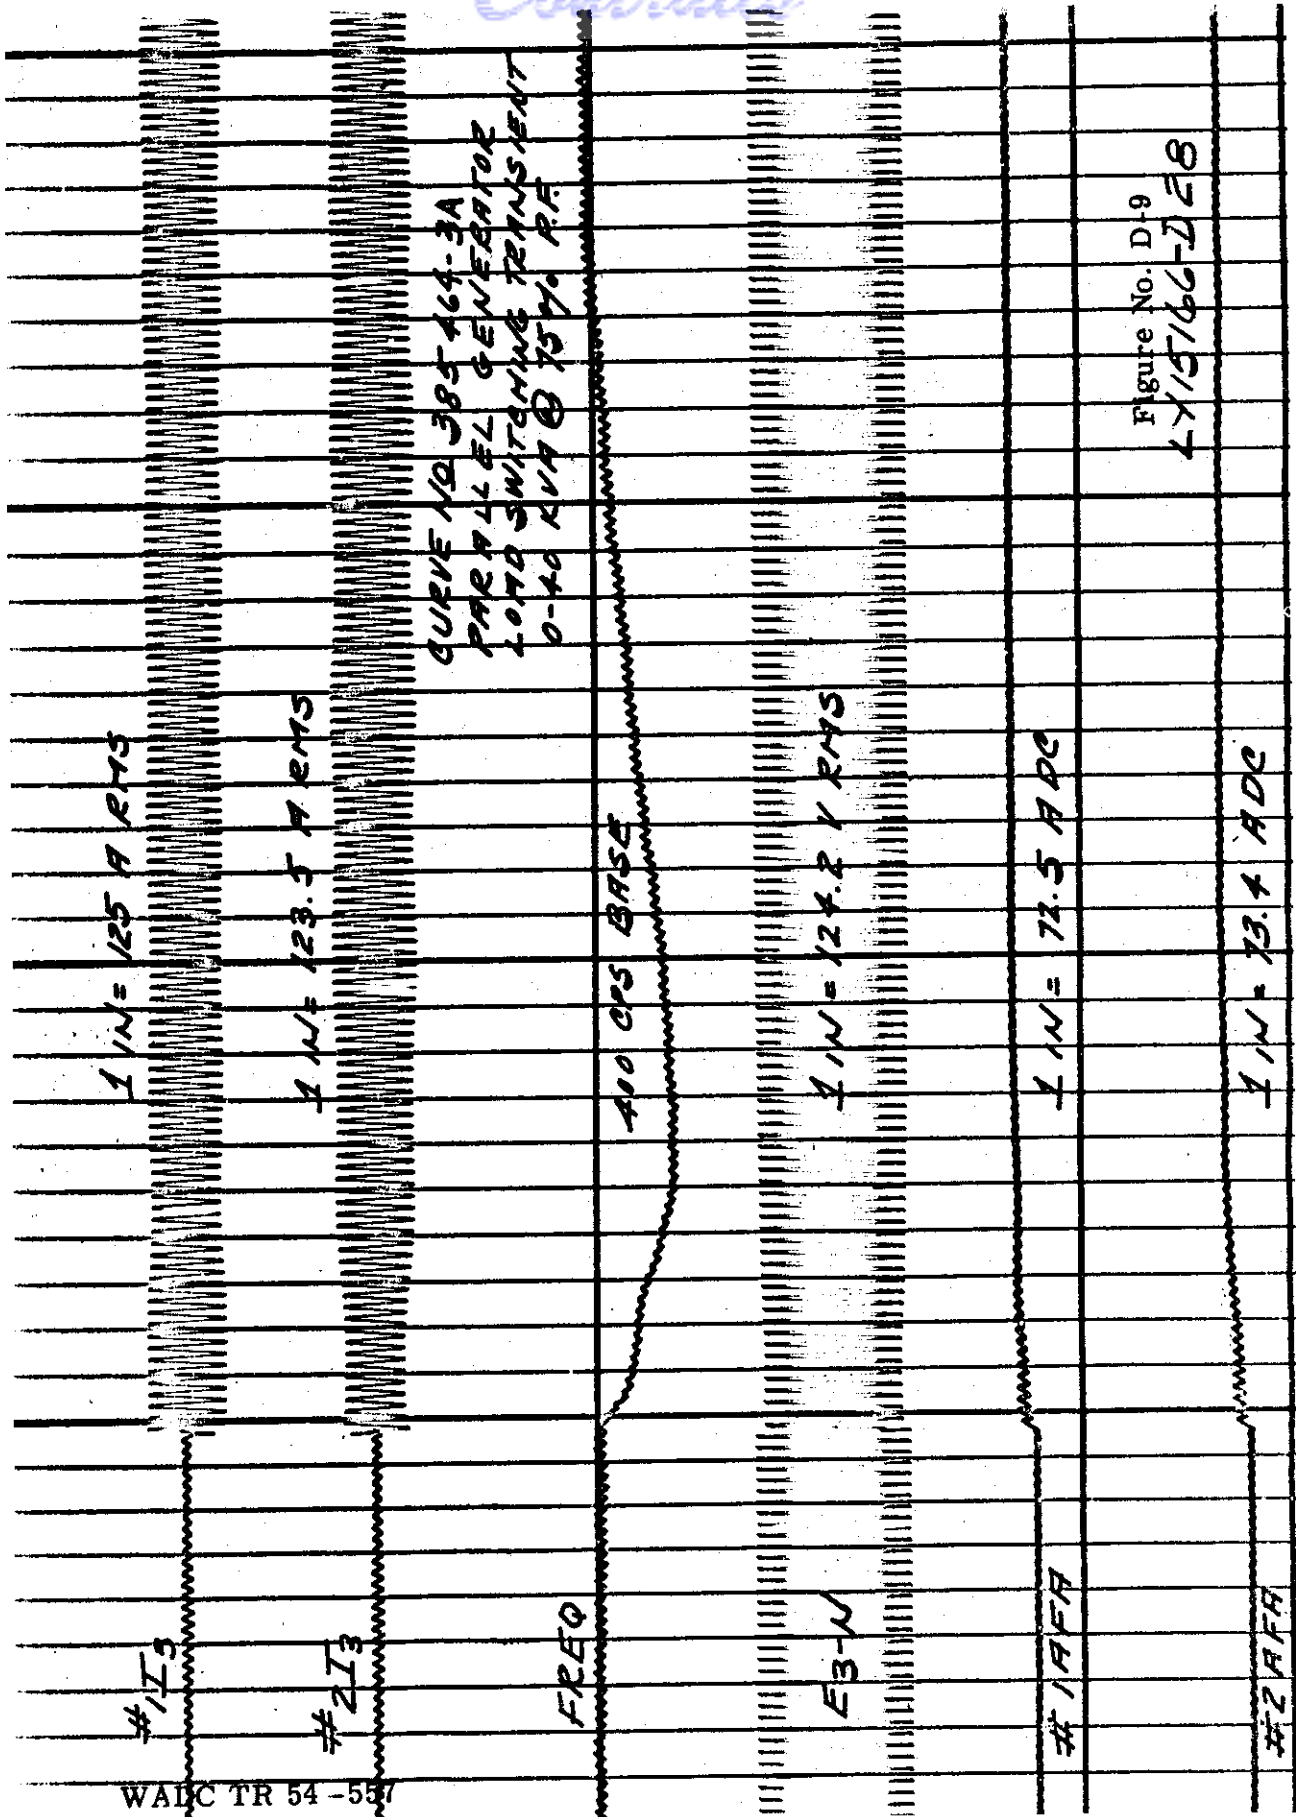 #1I3
1 IN = 125 A RMS
#2I3
1 IN = 123.5 A RMS
CURVE NO 385464-3A
PARALLEL GENERATOR
LOAD SWITCHING TRANSIENT
0-40 KVA @ 75% P.F.
FREQ
400 CPS BASE
E3-N
1 IN = 124.2 V RMS
#1 AFA
1 IN = 72.5 A DC
Figure No. D-9
LY15166-D28
#2 AFA
1 IN = 73.4 A DC
WADC TR 54-557